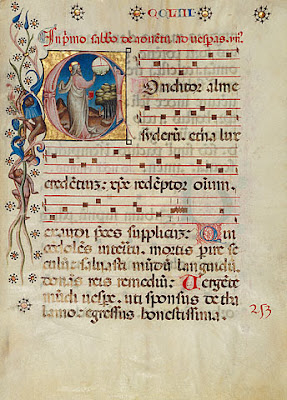 CCLIII
In pmo sabbo de aduentu ad uespas. yn.
COnditor alme
syderū. etna lux
credentium: xpe redēptor oīum.
exaudi pces supplicum: Qui
cōdolēs interitu. mortis pire se
culū: saluasti mūdū languidū.
donās reis remediū: Uergēte
mūdi uespe. uti sponsus de tha
lamo: egressus honestissima.
253